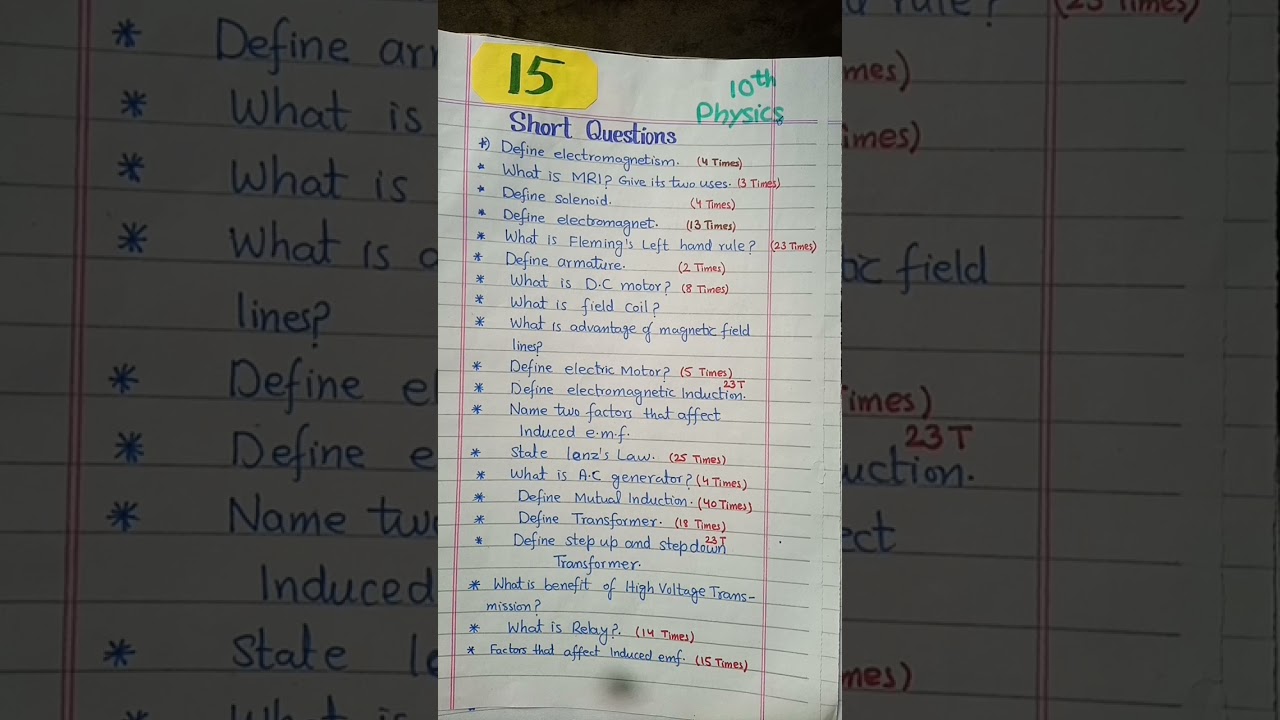 15
10th
Physics
Short Questions
*) Define electromagnetism. (4 Times)
* What is MRI? Give its two uses. (3 Times)
* Define solenoid. (4 Times)
* Define electromagnet. (13 Times)
* What is Fleming's Left hand rule? (23 Times)
* Define armature. (2 Times)
* What is D.C motor? (8 Times)
* What is field coil?
* What is advantage of magnetic field
lines?
* Define electric Motor? (5 Times)
* Define electromagnetic Induction. 23T
* Name two factors that affect
Induced e.m.f.
* State lenz's Law. (25 Times)
* What is A.C generator? (4 Times)
* Define Mutual Induction. (40 Times)
* Define Transformer. (18 Times)
* Define step up and step down 23T
Transformer.
* What is benefit of High Voltage Trans-
mission?
* What is Relay?. (14 Times)
* Factors that affect Induced emf. (15 Times)